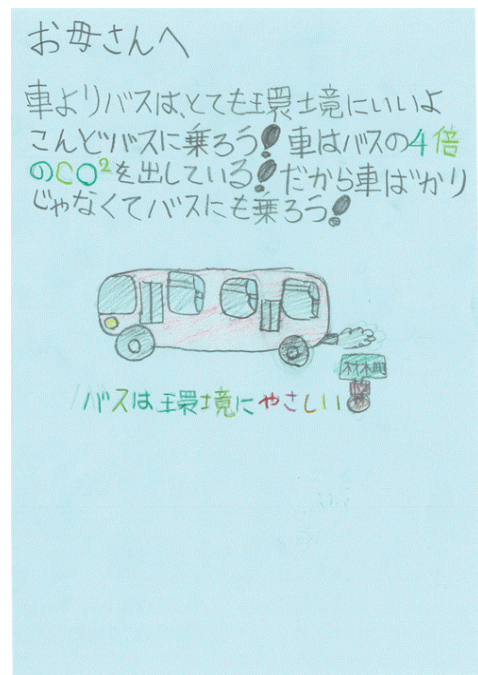 お母さんへ
車よりバスは、とても環境にいいよ
こんどバスに乗ろう！車はバスの4倍
のCO²を出している！だから車ばかり
じゃなくてバスにも乗ろう！
バスは環境にやさしい